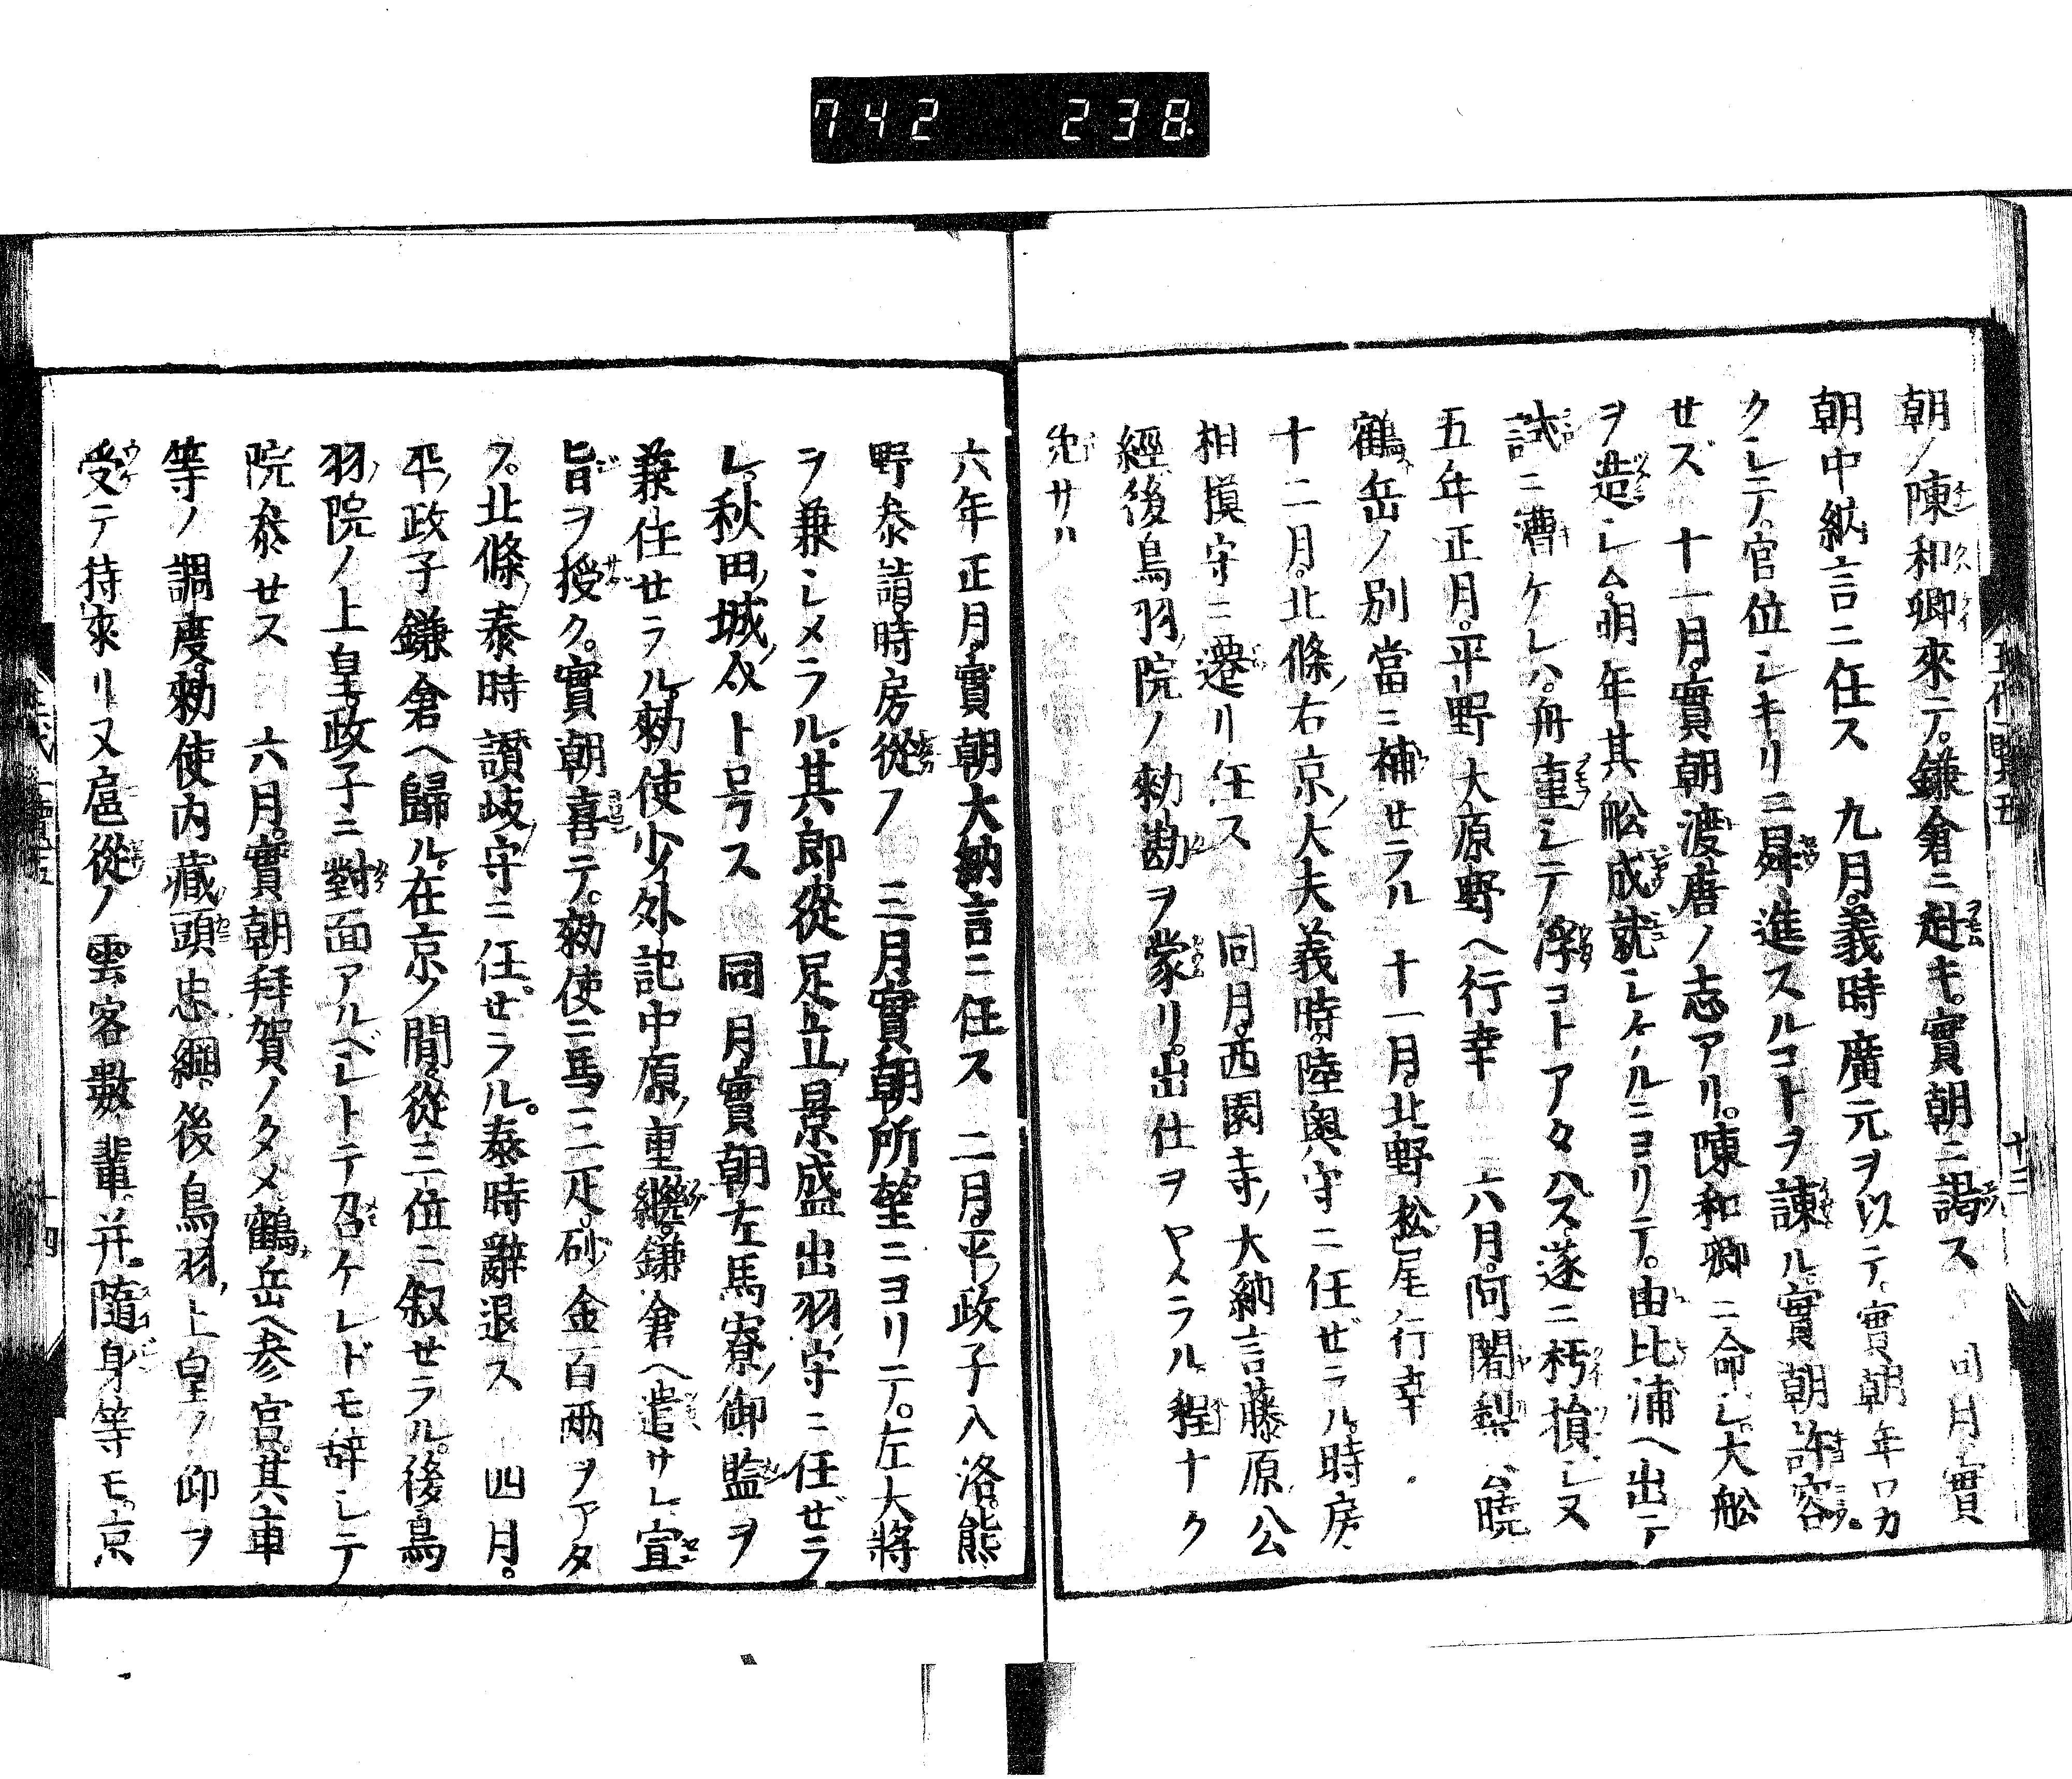 742 238
朝ノ陳和卿來テ。鎌倉ニ赴キ。實朝ニ謁ス 同月實
朝中納言ニ任ス 九月。義時廣元ヲ以テ。實朝年ワカ
クシテ。官位シキリニ昇進スルコトヲ諫ル。實朝許容
セズ 十一月。實朝渡唐ノ志アリ。陳和卿ニ命シ。大舩
ヲ造シム。明年其舩成就シケルニヨリテ。由比浦ヘ出テ
試ニ漕ケレハ。舟重シテ浮コトアタハス。遂ニ朽損シヌ
五年正月。平野大原野ヘ行幸 六月。阿闍梨公曉
鶴岳ノ別當ニ補セラル 十一月。北野松尾行幸
十二月。北條右京大夫義時。陸奥守ニ任ぜラル。時房
相摸守ニ遷リ任ス 同月。西園寺大納言藤原公
經。後鳥羽院ノ勅勘ヲ蒙リ。出仕ヲヤメラル。程ナク
免サル
六年正月。實朝大納言ニ任ス 二月。平政子入洛。熊
野参詣時房從フ 三月。實朝所望ニヨリテ。左大將
ヲ兼シメラル。其郎從足立景盛出羽守ニ任ぜラ
レ。秋田城介ト号ス 同月實朝左馬寮御監ヲ
兼任セラル。勅使少外記中原重繼。鎌倉ヘ遣サレ宣
旨ヲ授ク。實朝喜テ。勅使ニ馬三疋。砂金百兩ヲアタ
フ。北條泰時讃岐守ニ任ぜラル。泰時辭退ス 四月。
平政子鎌倉ヘ歸ル。在京ノ間。從三位ニ叙セラル。後鳥
羽院ノ上皇。政子ニ對面アルベシトテ召ケレドモ辞シテ
院参セス 六月。實朝拜賀ノタメ鶴岳ヘ参宮。其車
等ノ調度。勅使内藏頭忠綱。後鳥羽上皇ノ仰ヲ
受テ持來リヌ扈從ノ雲客數輩。并隨身等モ。京